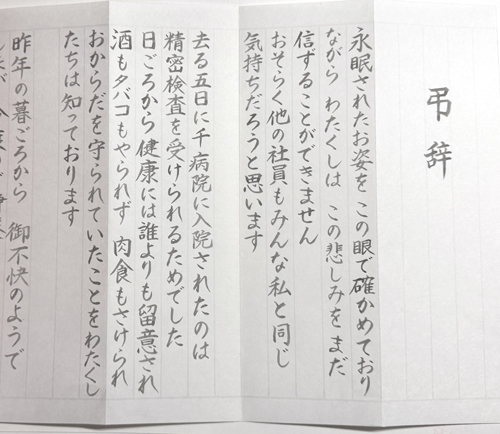 弔辞
永眠されたお姿を この眼で確かめており
ながら わたくしは この悲しみをまだ
信ずることができません
おそらく他の社員もみんな私と同じ
気持ちだろうと思います
去る五日に千病院に入院されたのは
精密検査を受けられるためでした
日ごろから健康には誰よりも留意され
酒もタバコもやられず 肉食もさけられ
おからだを守られていたことをわたくし
たちは知っております
昨年の暮ごろから 御不快のようで